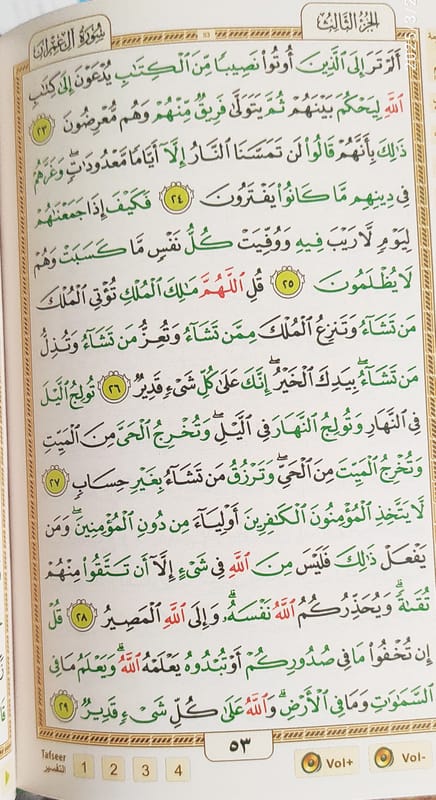 سُورَةُ آلِ عِمْرَانَ
53
الجُزءُ الثَّالِثُ
أَلَمْ تَرَ إِلَى ٱلَّذِينَ أُوتُوا۟ نَصِيبًا مِّنَ ٱلْكِتَـٰبِ يُدْعَوْنَ إِلَىٰ كِتَـٰبِ
ٱللَّهِ لِيَحْكُمَ بَيْنَهُمْ ثُمَّ يَتَوَلَّىٰ فَرِيقٌ مِّنْهُمْ وَهُم مُّعْرِضُونَ ٢٣
ذَٰلِكَ بِأَنَّهُمْ قَالُوا۟ لَن تَمَسَّنَا ٱلنَّارُ إِلَّآ أَيَّامًا مَّعْدُودَٰتٍ ۖ وَغَرَّهُمْ
فِى دِينِهِم مَّا كَانُوا۟ يَفْتَرُونَ ٢٤ فَكَيْفَ إِذَا جَمَعْنَـٰهُمْ
لِيَوْمٍ لَّا رَيْبَ فِيهِ وَوُفِّيَتْ كُلُّ نَفْسٍ مَّا كَسَبَتْ وَهُمْ
لَا يُظْلَمُونَ ٢٥ قُلِ ٱللَّهُمَّ مَـٰلِكَ ٱلْمُلْكِ تُؤْتِى ٱلْمُلْكَ
مَن تَشَآءُ وَتَنزِعُ ٱلْمُلْكَ مِمَّن تَشَآءُ وَتُعِزُّ مَن تَشَآءُ وَتُذِلُّ
مَن تَشَآءُ ۖ بِيَدِكَ ٱلْخَيْرُ ۖ إِنَّكَ عَلَىٰ كُلِّ شَىْءٍ قَدِيرٌ ٢٦ تُولِجُ ٱلَّيْلَ
فِى ٱلنَّهَارِ وَتُولِجُ ٱلنَّهَارَ فِى ٱلَّيْلِ ۖ وَتُخْرِجُ ٱلْحَىَّ مِنَ ٱلْمَيِّتِ
وَتُخْرِجُ ٱلْمَيِّتَ مِنَ ٱلْحَىِّ ۖ وَتَرْزُقُ مَن تَشَآءُ بِغَيْرِ حِسَابٍ ٢٧
لَّا يَتَّخِذِ ٱلْمُؤْمِنُونَ ٱلْكَـٰفِرِينَ أَوْلِيَآءَ مِن دُونِ ٱلْمُؤْمِنِينَ ۖ وَمَن
يَفْعَلْ ذَٰلِكَ فَلَيْسَ مِنَ ٱللَّهِ فِى شَىْءٍ إِلَّآ أَن تَتَّقُوا۟ مِنْهُمْ
تُقَىٰةً ۗ وَيُحَذِّرُكُمُ ٱللَّهُ نَفْسَهُۥ ۗ وَإِلَى ٱللَّهِ ٱلْمَصِيرُ ٢٨ قُلْ
إِن تُخْفُوا۟ مَا فِى صُدُورِكُمْ أَوْ تُبْدُوهُ يَعْلَمْهُ ٱللَّهُ ۗ وَيَعْلَمُ مَا فِى
ٱلسَّمَـٰوَٰتِ وَمَا فِى ٱلْأَرْضِ ۗ وَٱللَّهُ عَلَىٰ كُلِّ شَىْءٍ قَدِيرٌ ٢٩
٥٣
Tafseer
التفسير
1 2 3 4
Vol+ Vol-